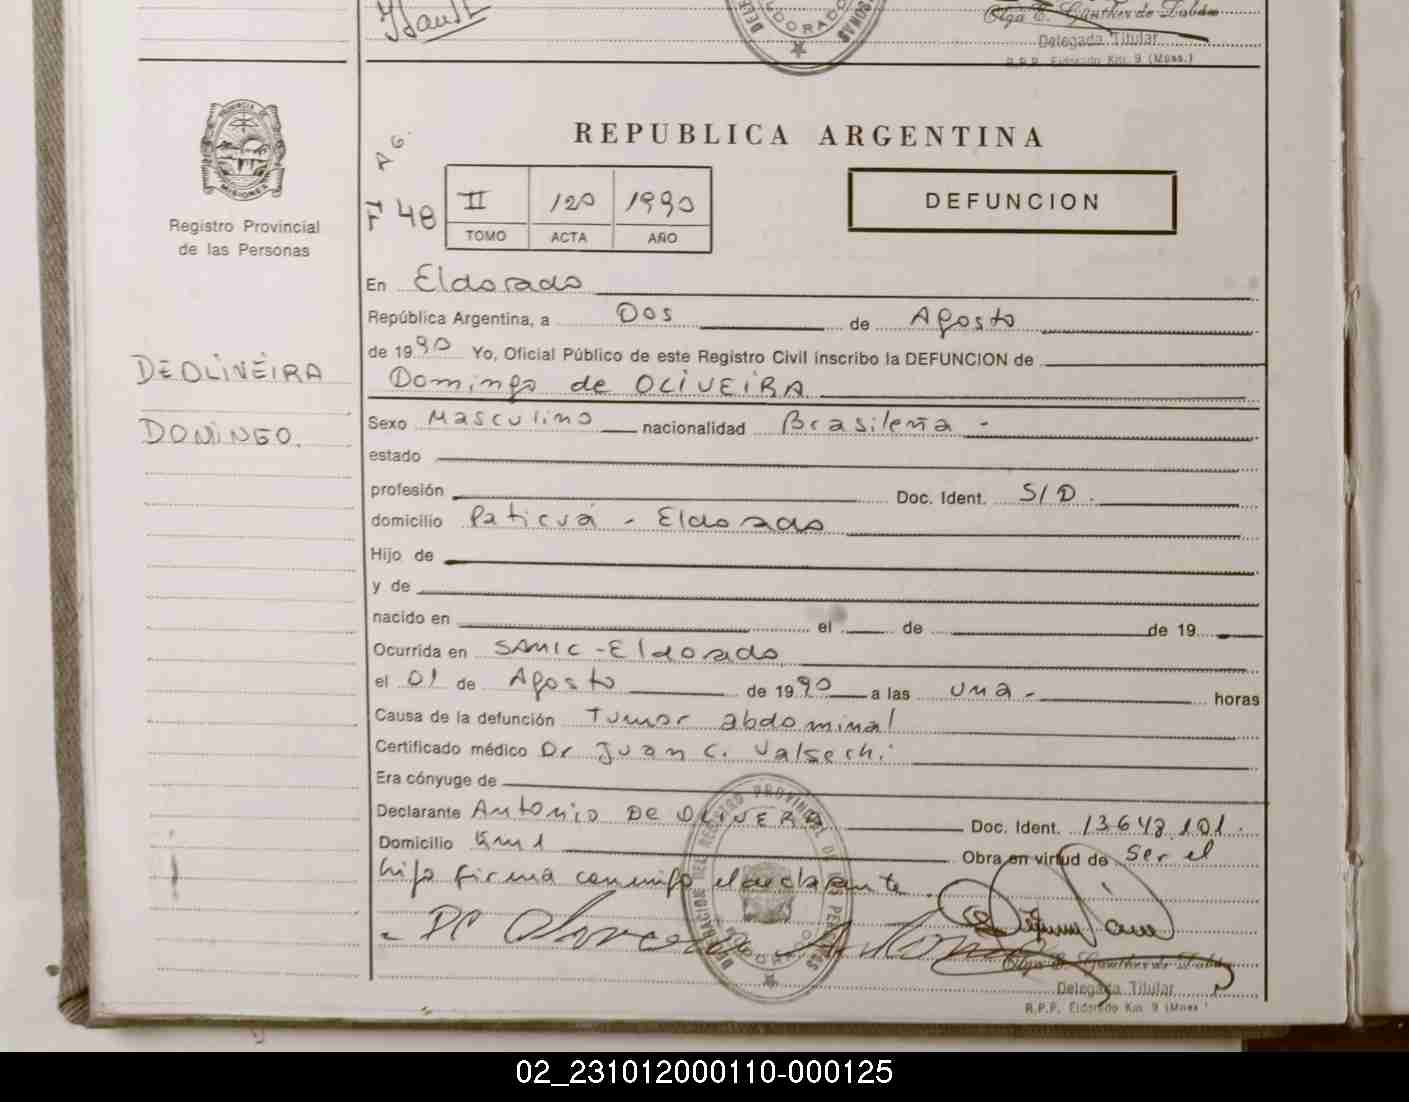 Olga E. Günther de Zabdo
Delegada Titular
R.P.P. Eldorado Km. 9 (Mnes.)
REPUBLICA ARGENTINA
PROVINCIA
MISIONES
Registro Provincial
de las Personas
F 48
II 120 1990
TOMO ACTA AÑO
DEFUNCION
En Eldorado
República Argentina, a Dos de Agosto
de 1990 Yo, Oficial Público de este Registro Civil inscribo la DEFUNCION de
DE OLIVEIRA
Domingo de OLIVEIRA
DOMINGO.
Sexo Masculino nacionalidad Brasileña -
estado
profesión Doc. Ident. S/D.
domicilio Paticuá - Eldorado
Hijo de
y de
nacido en el de de 19
Ocurrida en SAMIC - Eldorado
el 01 de Agosto de 1990 a las una - horas
Causa de la defunción Tumor abdominal
Certificado médico Dr Juan C. Valsechi
Era cónyuge de
Declarante Antonio DE OLIVERA Doc. Ident. 13648.101.
Domicilio Km 1 Obra en virtud de Ser el
hijo firma conmigo el declarante
DELEGACION DEL REGISTRO PROVINCIAL DE LAS PERSONAS
ELDORADO
Delegada Titular
R.P.P. Eldorado Km. 9 (Mnes.)
02_231012000110-000125